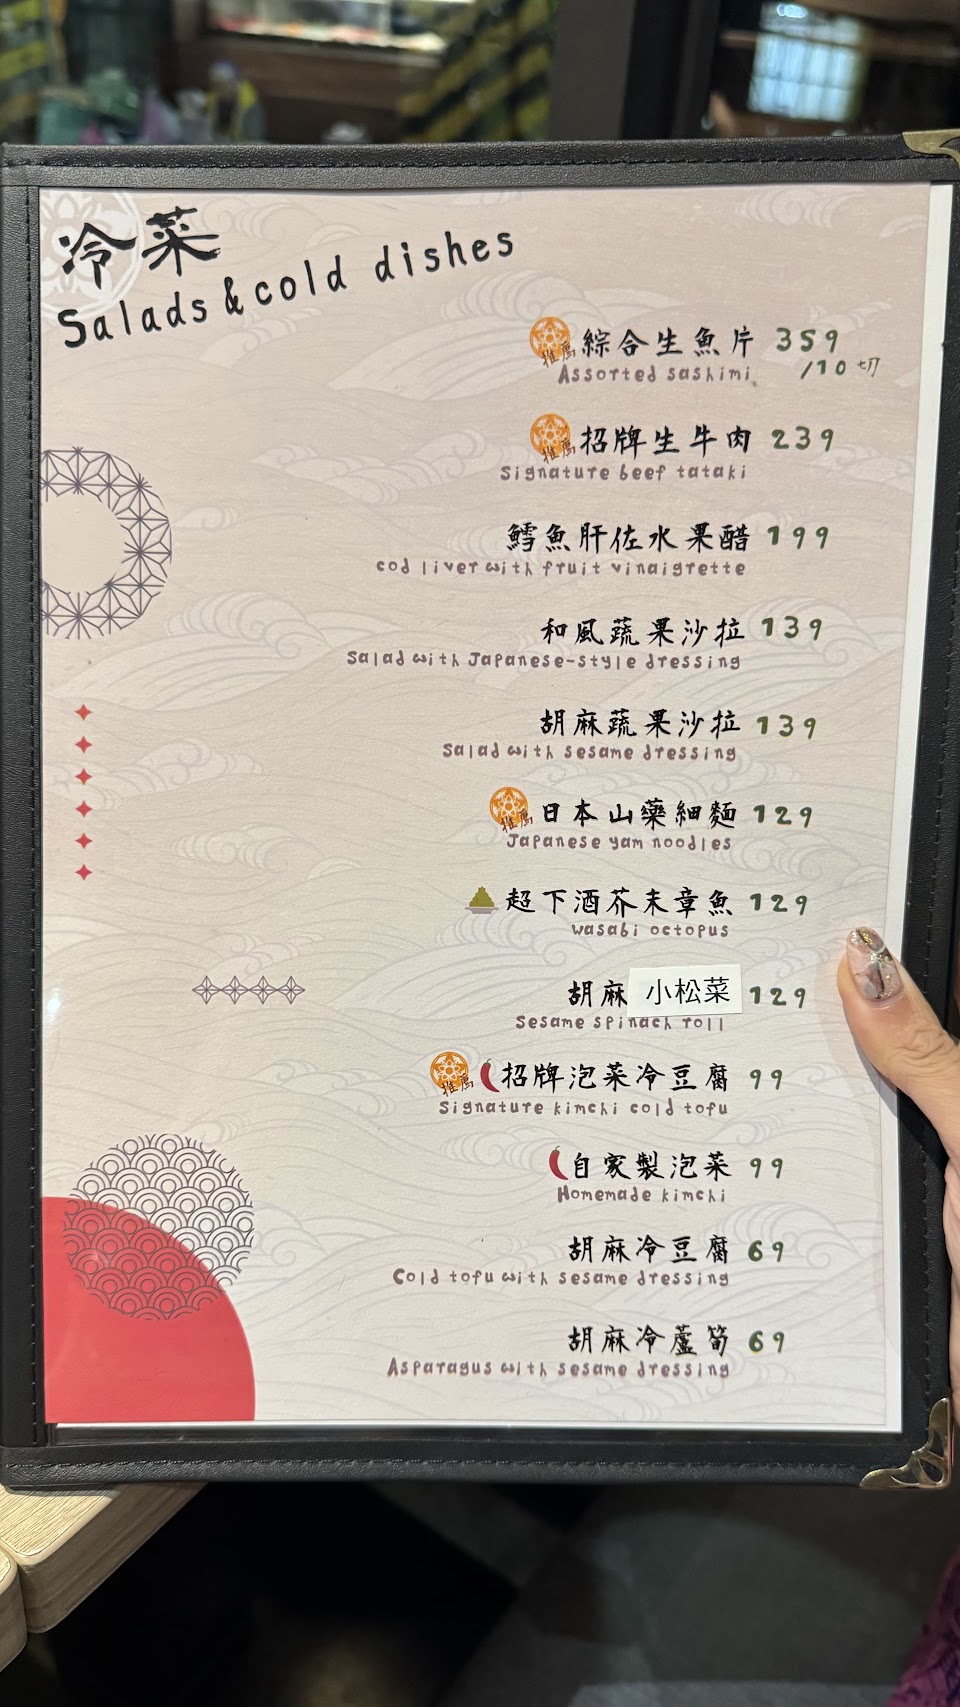 冷菜
Salads & cold dishes
推薦 綜合生魚片 359
Assorted sashimi /10切
推薦 招牌生牛肉 239
Signature beef tataki
鱈魚肝佐水果醋 199
cod liver with fruit vinaigrette
和風蔬果沙拉 139
Salad with Japanese-style dressing
胡麻蔬果沙拉 139
Salad with sesame dressing
推薦 日本山藥細麵 129
Japanese yam noodles
超下酒芥末章魚 129
wasabi octopus
胡麻 小松菜 129
Sesame spinach roll
推薦 招牌泡菜冷豆腐 99
Signature kimchi cold tofu
自家製泡菜 99
Homemade kimchi
胡麻冷豆腐 69
Cold tofu with sesame dressing
胡麻冷蘆筍 69
Asparagus with sesame dressing